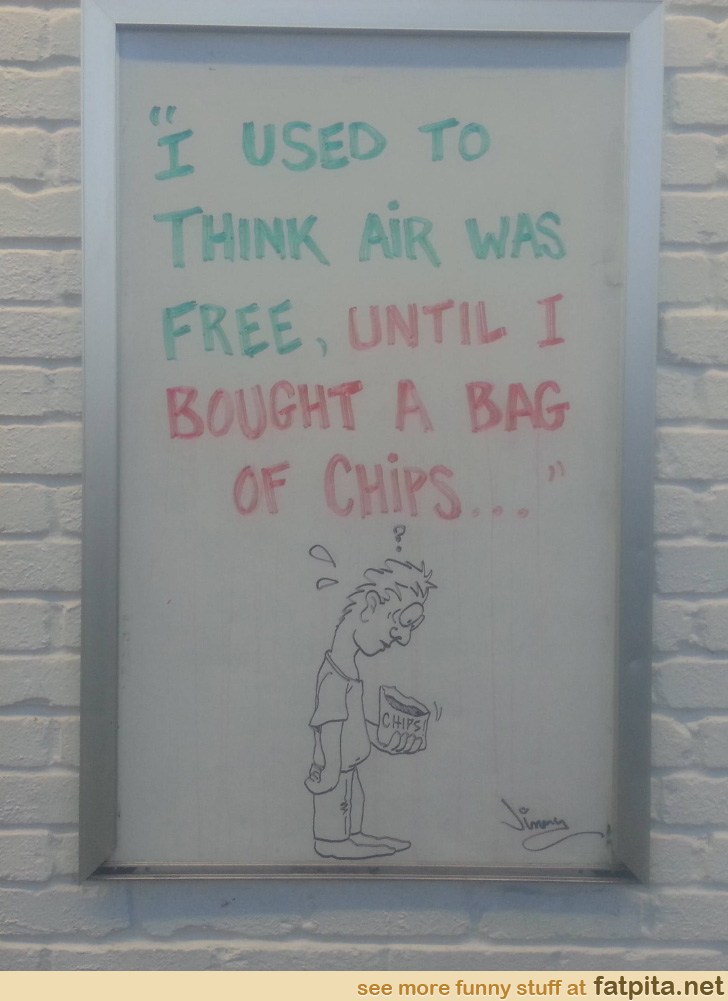 “I USED TO
THINK AiR WAS
FREE, UNTIL I
BOUGHT A BAG
OF CHiPS...”
?
CHIPS!
Jimmy
see more funny stuff at fatpita.net